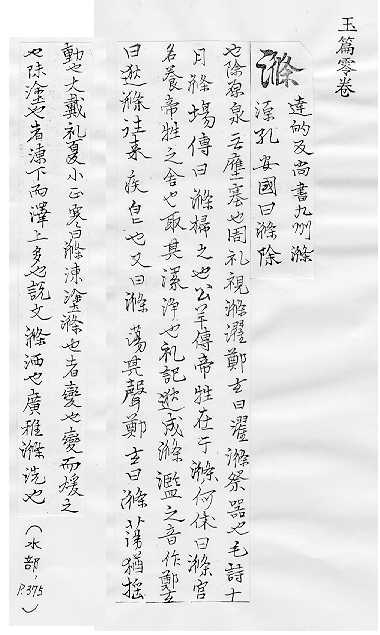 玉篇零卷
滌
達的反尚書九州滌
源孔安國曰滌除
也除泉源无壅塞也周礼視滌濯鄭玄曰濯滌祭器也毛詩十
月滌場傳曰滌掃之也公羊傳帝牲在于滌何休曰滌宮
名養帝牲之舍也取其潔淨也礼記迭成滌濫之音作鄭玄
曰狄滌往来疾皃也又曰滌蕩其聲鄭玄曰滌蕩猶揺
動也大戴礼夏小正寒日滌凍塗滌也者變也變而煖之
也凍塗也者凍下而澤上多也說文滌洒也廣雅滌洗也
（水部，P.375）